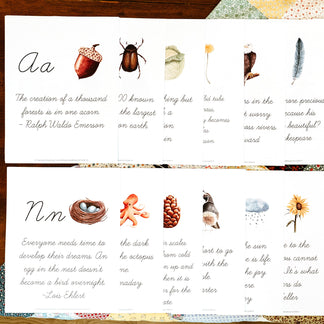 Aa
The creation of a thousand
forests is in one acorn.
- Ralph Waldo Emerson
00 known
the largest
on earth
thing but
a
tion
But take
wers
becomes
to
eagle
t worry
ss rivers
ward
ore precious
because his
beautiful?
kespeare
Nn
Everyone needs time to
develop their dreams. An
egg in the nest doesn't
become a bird overnight.
-Lois Ehlert
the dark
he octopus
ne
naday
wakes
from cold
n up and
when it
s for the
ate
ort to go
with the
on
e sun
is like
he joy
were
gs
s to the
ou cannot
It's what
s do.
eller